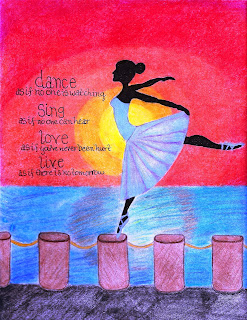 dance
as if no one is watching
Sing
as if no one can hear
love
as if you've never been hurt
live
as if there is no tomorrow